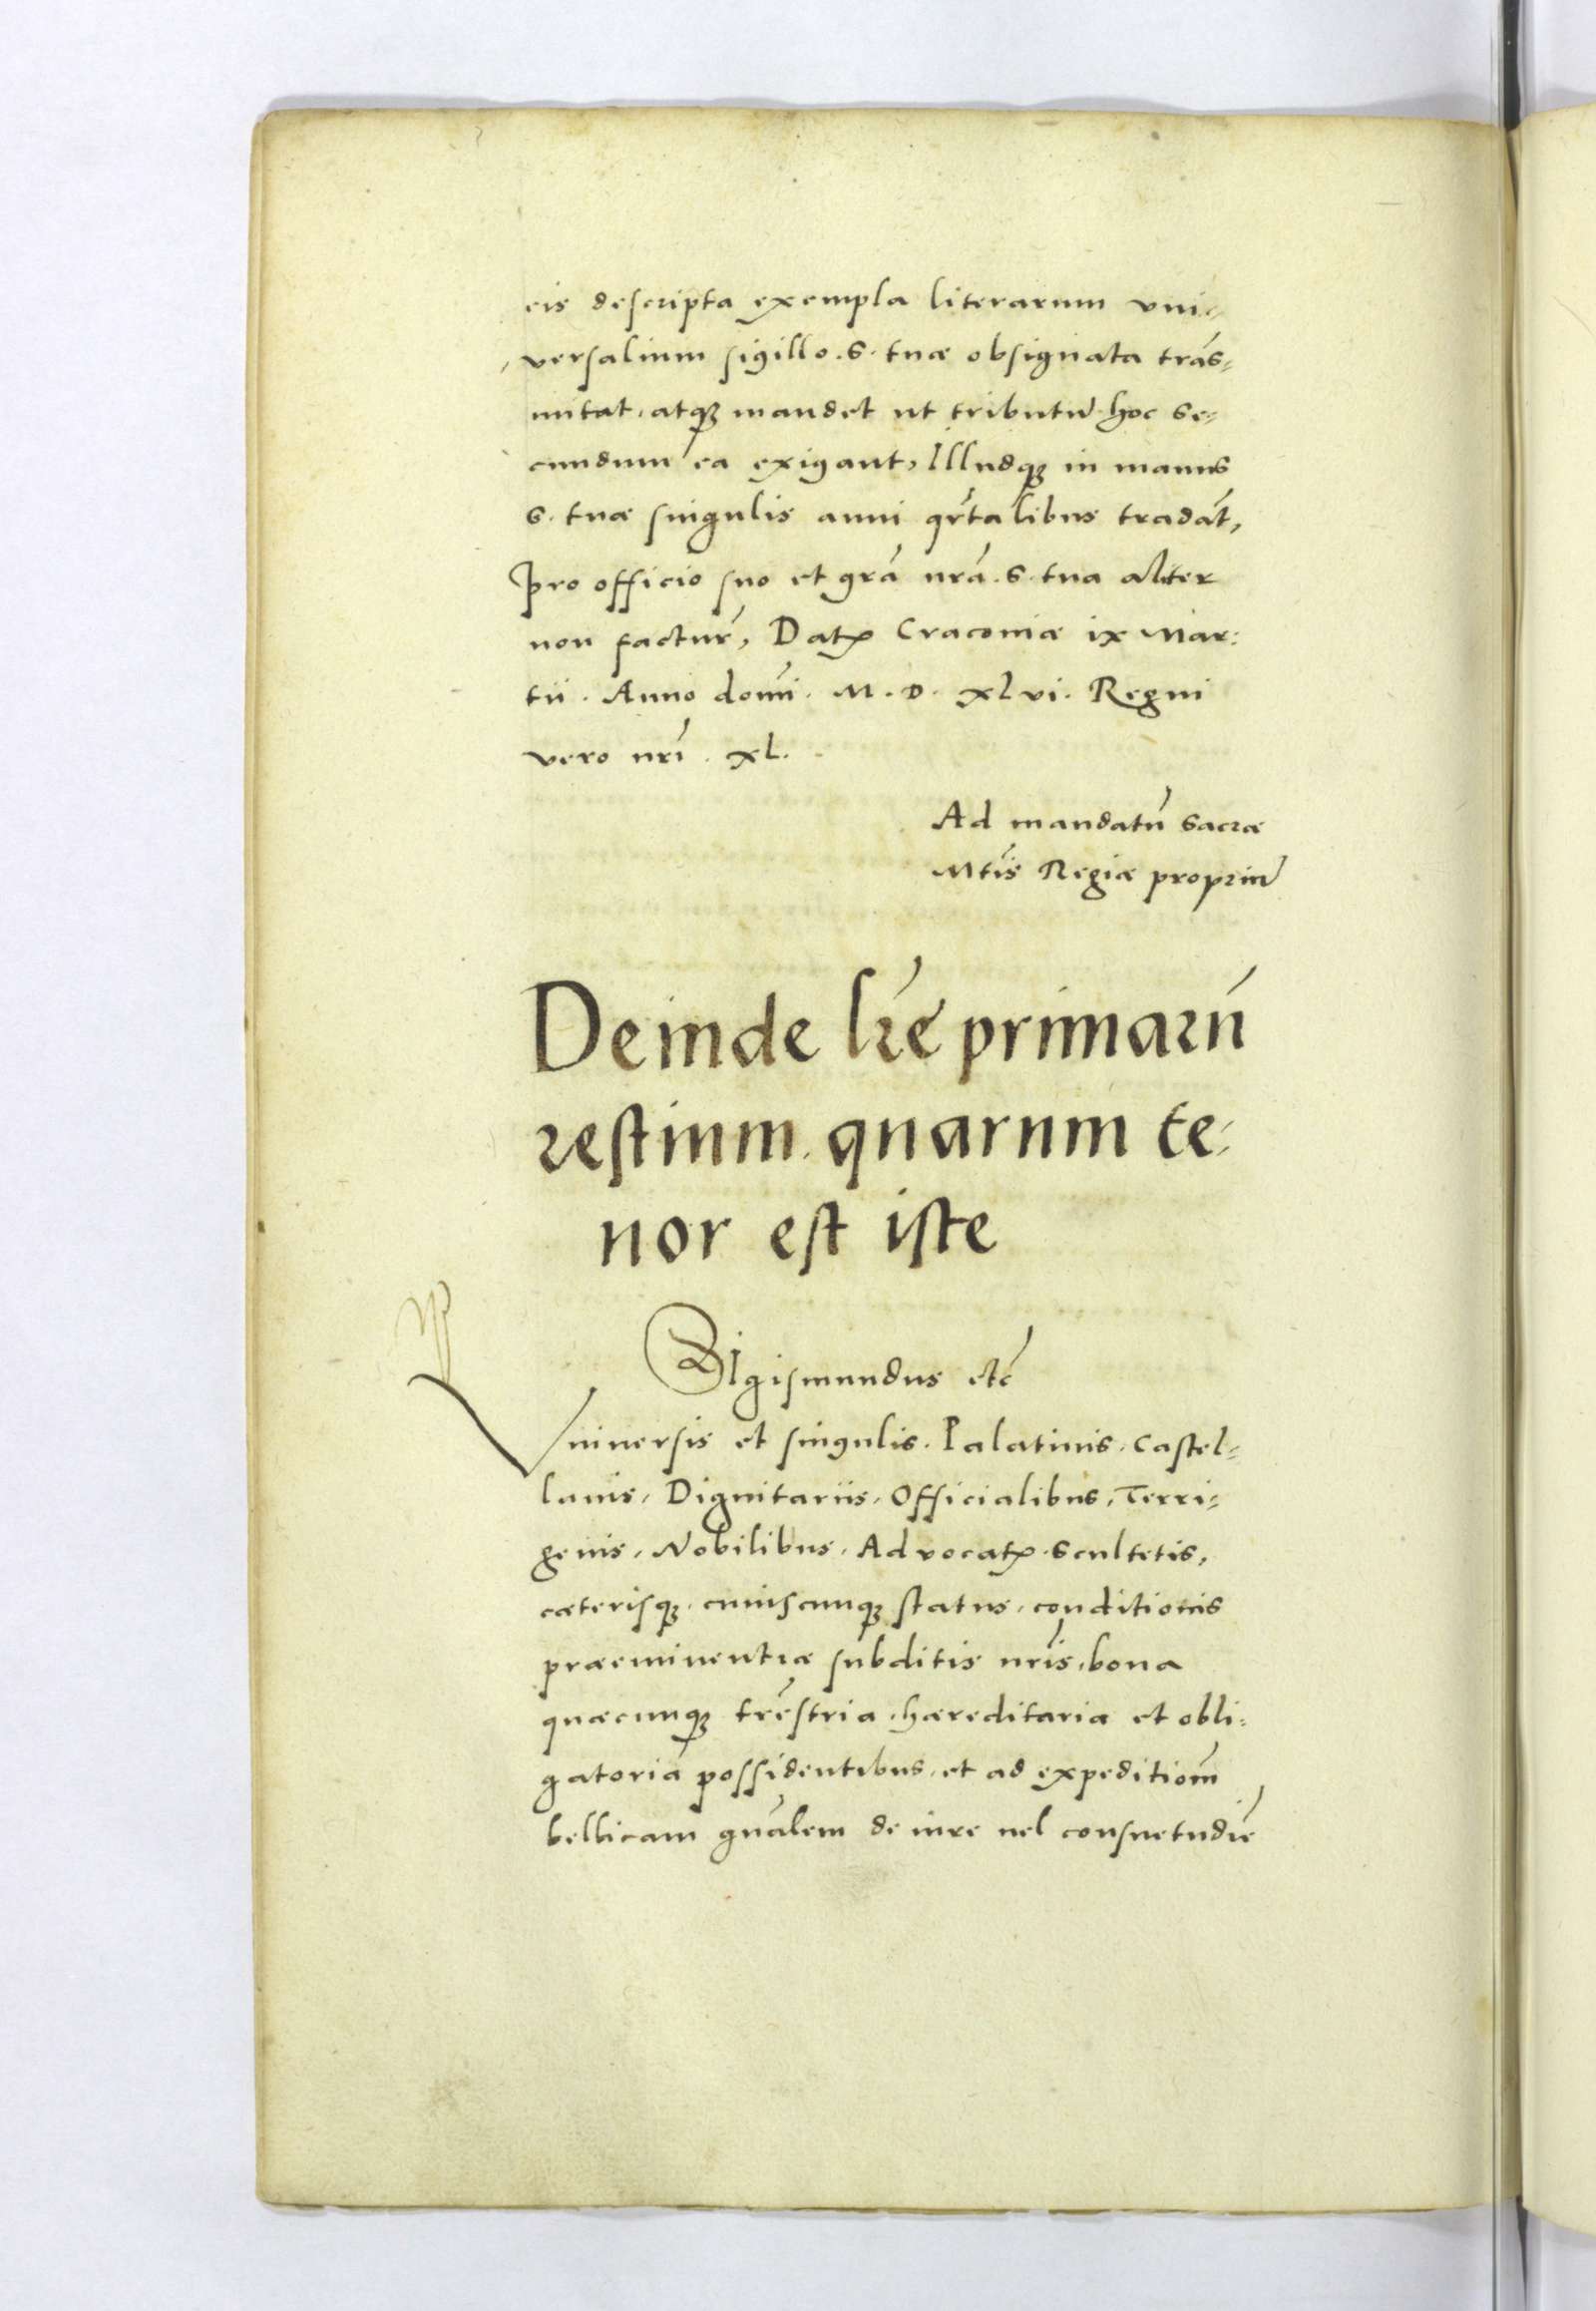 eis descripta exempla literarum vni-
versalium sigillo. S. tuæ obsignata trās-
mitat. atqꝫ mandet ut tributū hoc Se-
cundum ea exigant, Illudqꝫ in manus
S. tuæ singulis anni qrtalibus tradāt,
Pro officio suo et grā nrā. S. tua aliter
non factur̄, Datꝭ Cracouiæ ix Mar:
tii. Anno domī. M. D. xlvi. Regni
vero nrī. xl.
Ad mandatū Sacræ
Mtīs Regiæ propriū
Deinde lr̄e primarū
restium. quarum te-
nor est iste
SIgismundus etc̄
Vniuersis et singulis. Palatinis. Castel-
lanis, Dignitariis, Officialibus, Terri-
genis, Nobilibus. Aduocatꝭ. Scultetis,
cæterisqꝫ. cuiuscunqꝫ status, conditionis
præeminentiæ subditis nrīs, bona
quæcunqꝫ trēstria. hæreditaria et obli-
gatoria possidentibus. et ad expeditiom̄
bellicam gnālem de iure uel consuetudīe